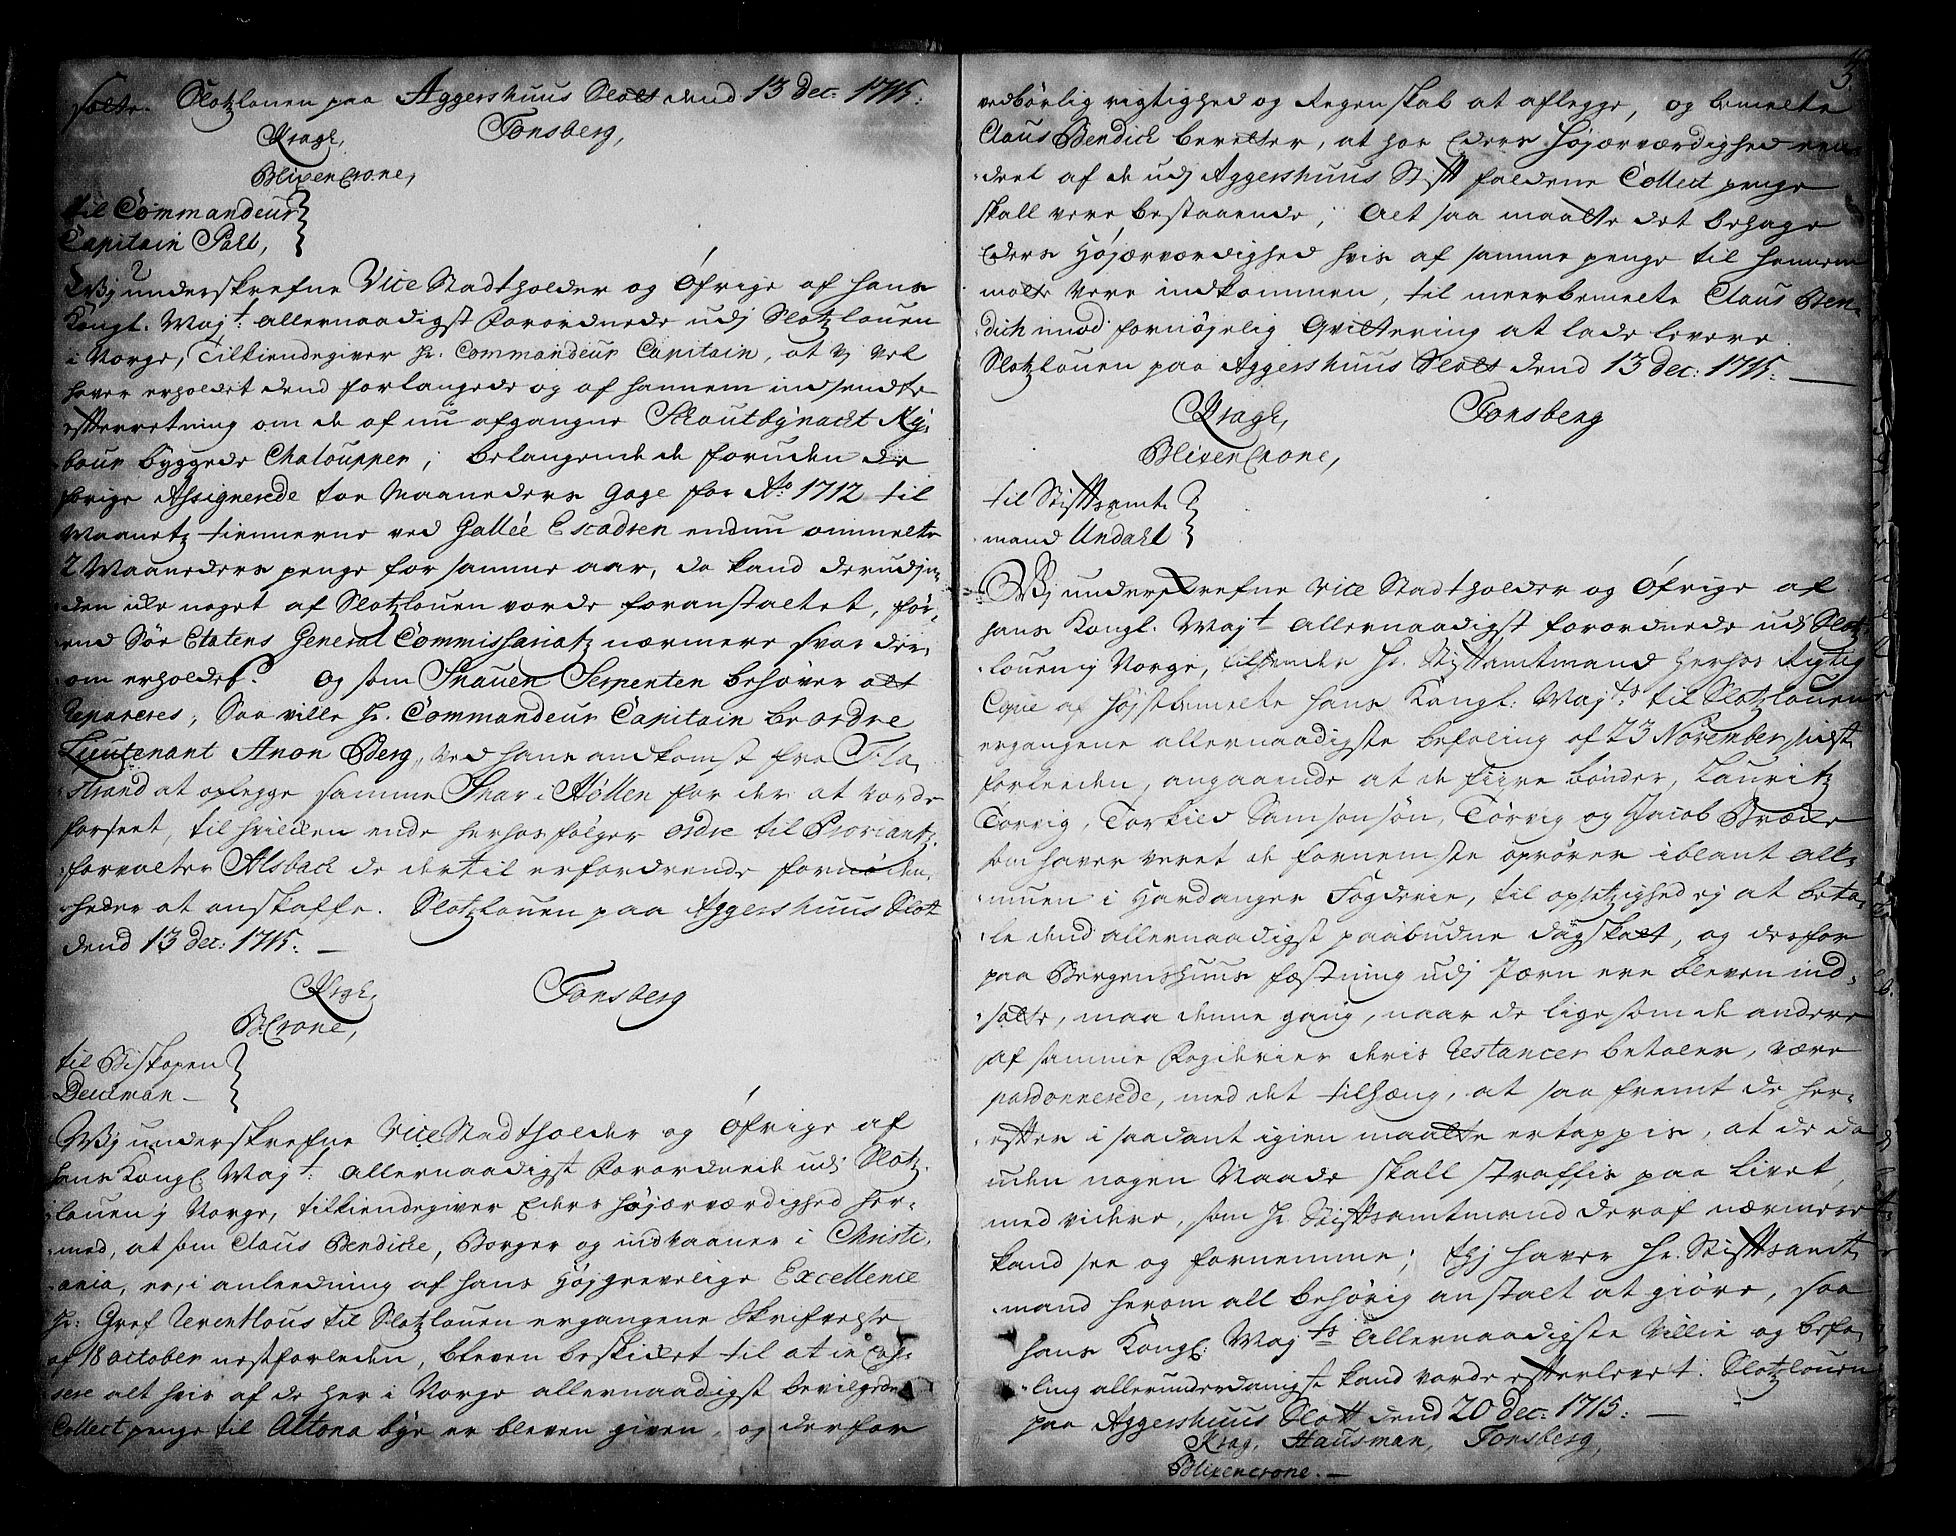 sätte. Slotzlouen paa Aggershuus Slott dend 13 dec: 1715:
Kragh, Tonsberg,
Blixencrone,
til Commandeur
Capitain
Wÿ underskrefne Vice Stadtholder og Øfrige af hans
Kongl. Majt: allernaadigst forordnede udj Slotzlouen
i Norge, Tilkiendegiver Hr. Commandeur Capitain, at vj vel
haver erholdet dend forlangede og af hannem indsendte
effterretning om de af nu afgangne Schoutbynacht Ry-
byggede Chalouppen; belangende de foruden de
øfrige Assignerede toe Maaneders gage for Ao. 1712 til
Maanetz tiennerne ved Galleé Escadren endnu ommelte
2 Maaneders penge for samme aar, da kand derudjn-
den icke noget af Slotzlouen vorde foranstaltet, før-
end Søe Etatens General Commissariatz nærmere svar der-
om erholdes. Og som Snauen Serpenten behøver alt
repareres, Saa ville Hr. Commandeur Capitain beordre
Lieutenant Anon Berg, ved hans ankomst fra Fla-
strand at oplegge samme Snav i Hollen for der at vorde
forseet, til hvilcken ende herhos følger ordre til Proviantz
forvalter Alsback de dertil erfordrende fornøden-
heder at anskaffe. Slotzlouen paa Aggershuus Slot
dend 13 dec: 1715:
Kragh, Tonsberg
B.Crone,
til Biskopen
Deichman
Wÿ underskrefne Vice Stadtholder og Øfrige af
hans Kongl. Majt: allernaadigst forordnede udj Slotz-
louen j Norge, tilkiendegiver Eders Højærværdighed her-
med, at som Claus Bendicke, Borger og indvaaner i Christi-
ania, er, i anleedning af hans Højgrevelige Excellence
Hr: Gref Reventlous til Slotzlouen ergangene Skrifvelse
af 18 october nestforleden, bleven beskicket til at incas-
sere alt hvis af de her i Norge allernaadigst bevilgede
Collect penge til Altona bye er bleven given, og derfor
3.
vedbörlig rigtighed og Regenskab at aflegge, og bemelte
Claus Bendich beretter, at hos Eders Højærværdighed een
deel af de udj Aggershuus Stifft faldene Collect penge
skall vere bestaaende; Alt saa maatte det behage
Eders Højærværdighed hvis af samme penge til hannem
motte vere indkommen, til meerbemelte Claus Ben-
dich imod fornøjelig Qvittering at lade levere.
Slotzlouen paa Aggershuus Slott dend 13 dec: 1715:
Kragh, Tonsberg
Blixencrone,
til Stifftsamt
mand Undahl
Wj underskrefne Vice Stadtholder og Øfrige af
hans Kongl. Majt allernaadigst forordnede udj Slotz
louen j Norge, tilsender Hr. Stifftamtmand herhos Rigtig
Copie af højstbemelte hans Kongl: Majts: til Slotzlouen
ergangene allernaadigste befaling af 23 November sidst
forleeden, angaaende at de fiire bönder, Lauritz
Torvig, Torkild Samsonsön, Törvig og Jacob
som haver veret de fornemste oprörer iblant all-
muen i Hardanger Fogderie, til opsetzighed ej at beta-
le dend allernaadigst paabudne dagskatt, og derfor
paa Bergenshuus fæstning udj Jærn ere bleven ind-
satte, maa denne gang, naar de ligesom de andere
af samme Fogderier deris Restancer betaler, være
pardonnerede, med det tilhæng, at saa fremt de her-
effter i saadant igien maatte ertappis, at de da
uden nogen Naade skall straffis paa livet,
med videre, som Hr. Stifftsamtmand deraf nærmere
kand see og fornemme; Thj haver Hr. Stifftsamt
mand herom all behörig anstalt at giöre, saa
hans Kongl: Majts allernaadigste Villie og befa-
ling allerunderdanigst kand vorde effterlevet. Slotzlouen
paa Aggershuus Slott dend 20 dec: 1715:
Krag, Hausman, Tonsberg,
Blixencrone.